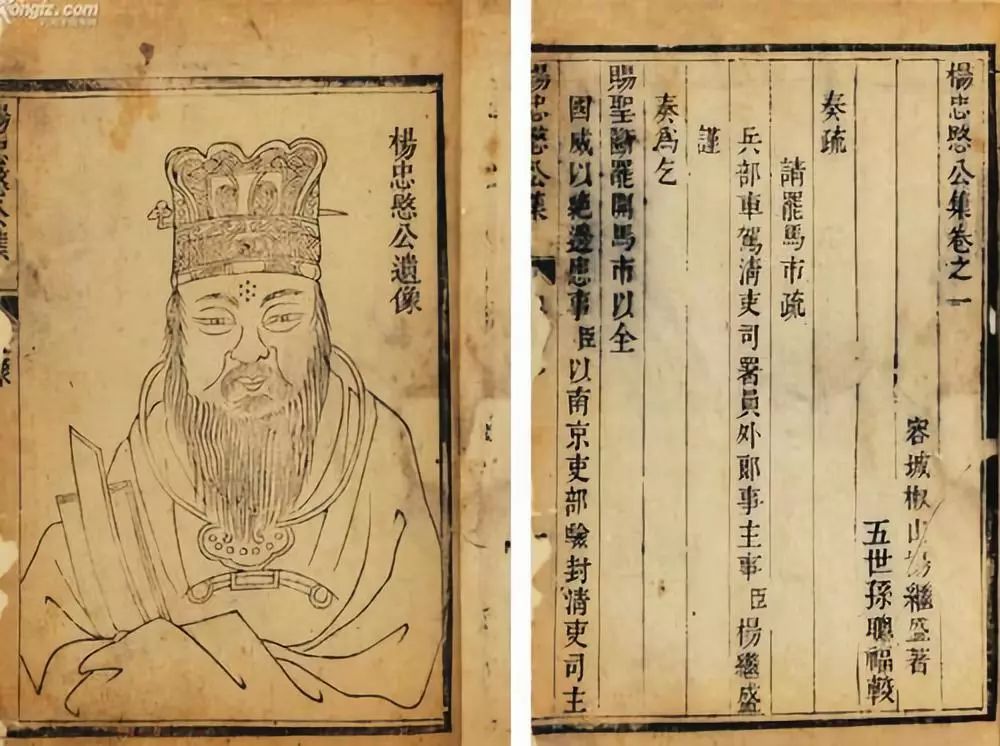 楊忠愍公集卷之一
容城椒山楊繼盛著
五世孫聰福較
奏疏
請罷馬市疏
兵部車駕清吏司署員外郎事主事臣楊繼盛
謹
奏爲乞
賜聖斷罷開馬市以全
國威以絶邊患事臣以南京吏部驗封清吏司主
楊忠愍公集
楊忠愍公遺像
楊忠愍公集